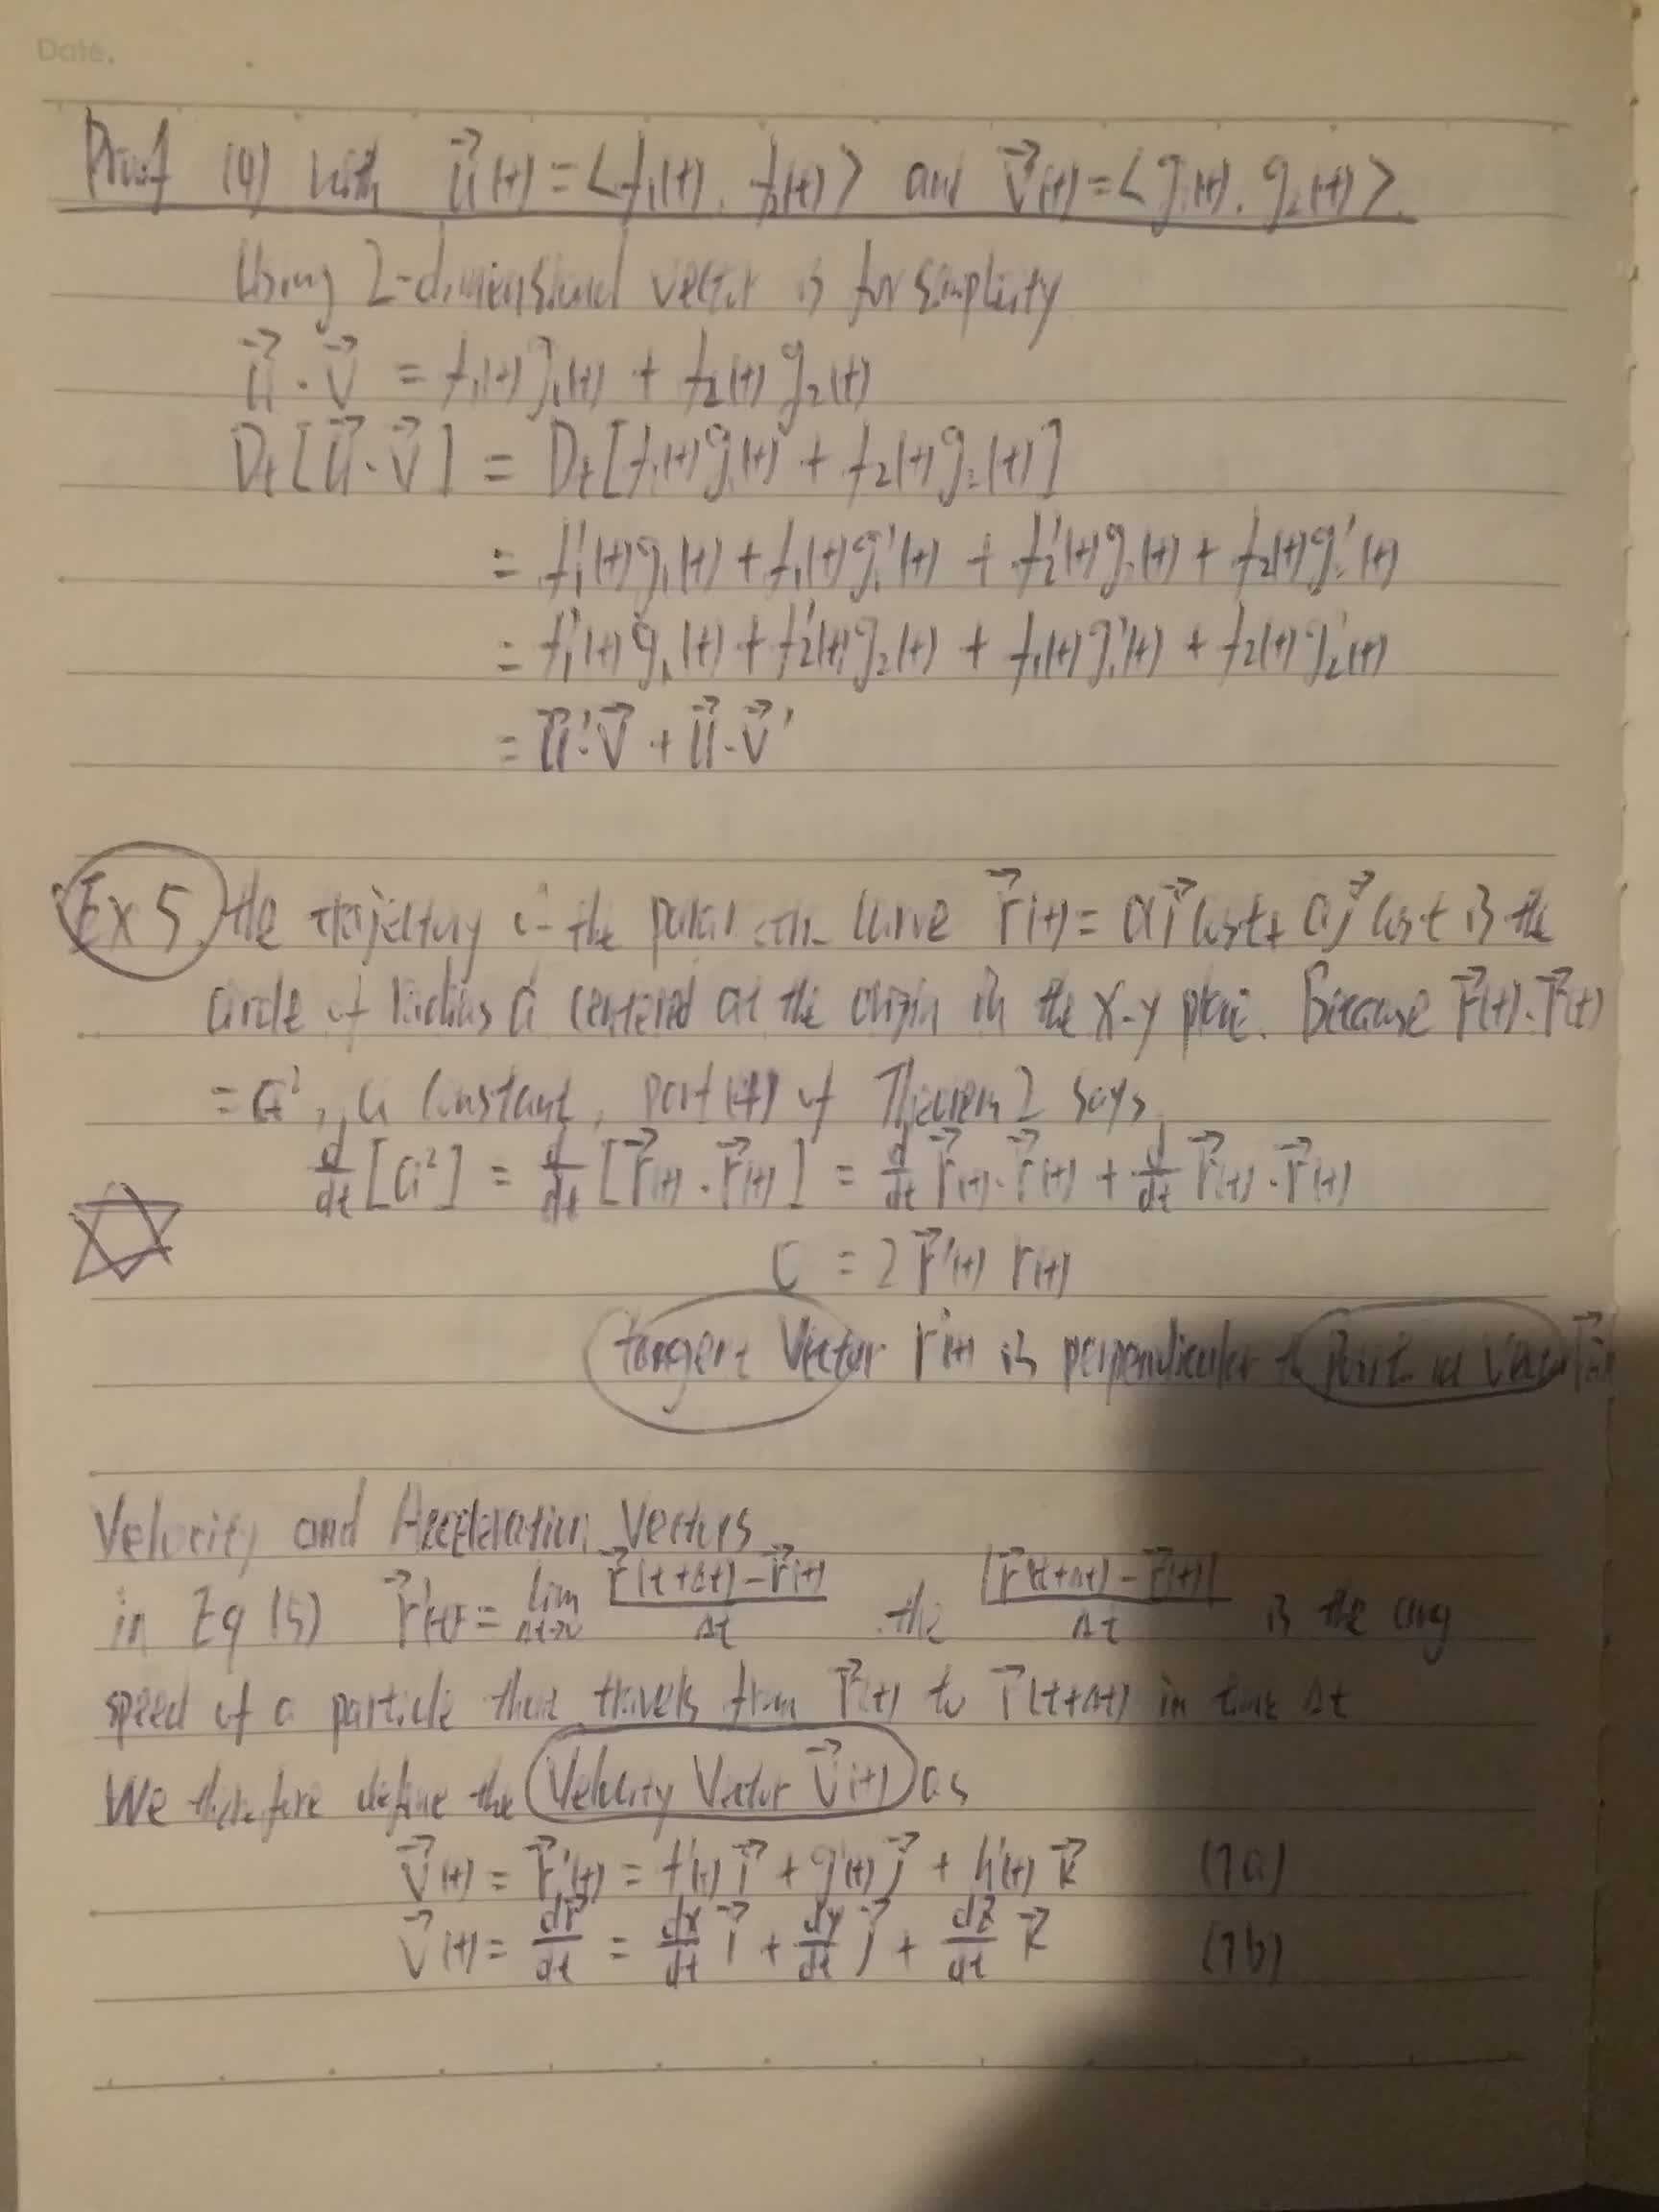 Date.
Proof (4) with u⃗(t) = <f₁(t), f₂(t)> and v⃗(t) = <g₁(t), g₂(t)>.
Using 2-dimensional vector is for simplicity
u⃗ · v⃗ = f₁(t)g₁(t) + f₂(t)g₂(t)
Dt[u⃗ · v⃗] = Dt[f₁(t)g₁(t) + f₂(t)g₂(t)]
= f₁'(t)g₁(t) + f₁(t)g₁'(t) + f₂'(t)g₂(t) + f₂(t)g₂'(t)
= f₁'(t)g₁(t) + f₂'(t)g₂(t) + f₁(t)g₁'(t) + f₂(t)g₂'(t)
= u⃗' · v⃗ + u⃗ · v⃗'
Ex 5. the trajectory of the curve r⃗(t) = a i⃗ cos t + a j⃗ cos t is the
circle of radius a centered at the origin in the x-y plane. Because r⃗(t) · r⃗(t)
= a², a constant, part (4) of Theorem 2 says
d/dt [a²] = d/dt [r⃗(t) · r⃗(t)] = d/dt r⃗(t) · r⃗(t) + d/dt r⃗(t) · r⃗(t)
0 = 2 r⃗'(t) r(t)
tangent vector r'(t) is perpendicular to vector
Velocity and Acceleration Vectors
in Eq (5) r⃗'(t) = lim Δt→0 (r⃗(t+Δt) - r⃗(t))/Δt the |r⃗(t+Δt) - r⃗(t)|/Δt is the avg
speed of a particle that travels from r⃗(t) to r⃗(t+Δt) in time Δt
We therefore define the Velocity Vector v⃗(t) as
v⃗(t) = r⃗'(t) = f'(t) i⃗ + g'(t) j⃗ + h'(t) k⃗ (7a)
v⃗(t) = dr⃗/dt = dx/dt i⃗ + dy/dt j⃗ + dz/dt k⃗ (7b)